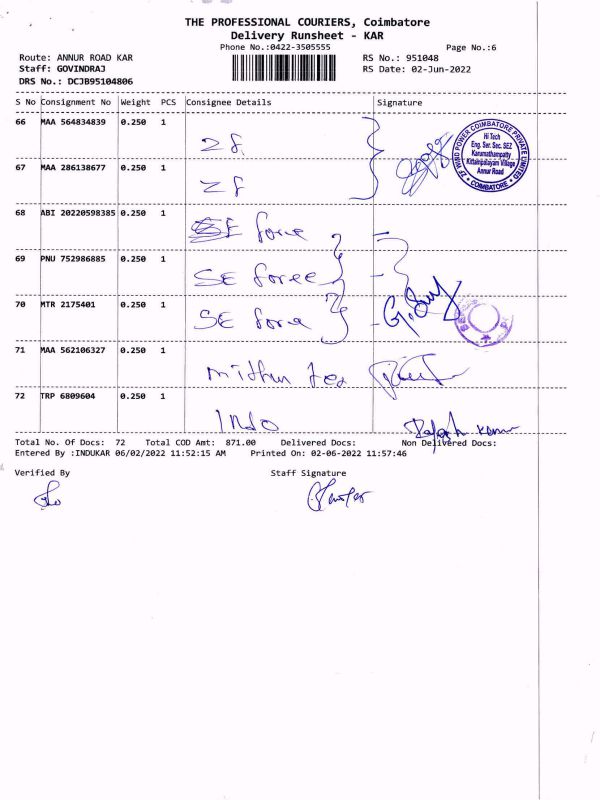 THE PROFESSIONAL COURIERS, Coimbatore
Delivery Runsheet - KAR
Phone No.:0422-3505555 Page No.:6
Route: ANNUR ROAD KAR RS No.: 951048
Staff: GOVINDRAJ RS Date: 02-Jun-2022
DRS No.: DCJB95104806
S No Consignment No Weight PCS Consignee Details Signature
66 MAA 564834839 0.250 1
ZF
ZF WIND POWER COIMBATORE PRIVATE LIMITED
Hi Tech
Eng. Ser. Sec. SEZ
Karumathampatty
Kittampalayam Village
Annur Road
* COIMBATORE *
67 MAA 286138677 0.250 1
ZF
68 ABI 20220598385 0.250 1
SE force
69 PNU 752986885 0.250 1
SE force
70 MTR 2175401 0.250 1
SE force
71 MAA 562106327 0.250 1
mithun tex
72 TRP 6809604 0.250 1
INDO
Rajesh Kumar
Total No. Of Docs: 72 Total COD Amt: 871.00 Delivered Docs: Non Delivered Docs:
Entered By :INDUKAR 06/02/2022 11:52:15 AM Printed On: 02-06-2022 11:57:46
Verified By Staff Signature